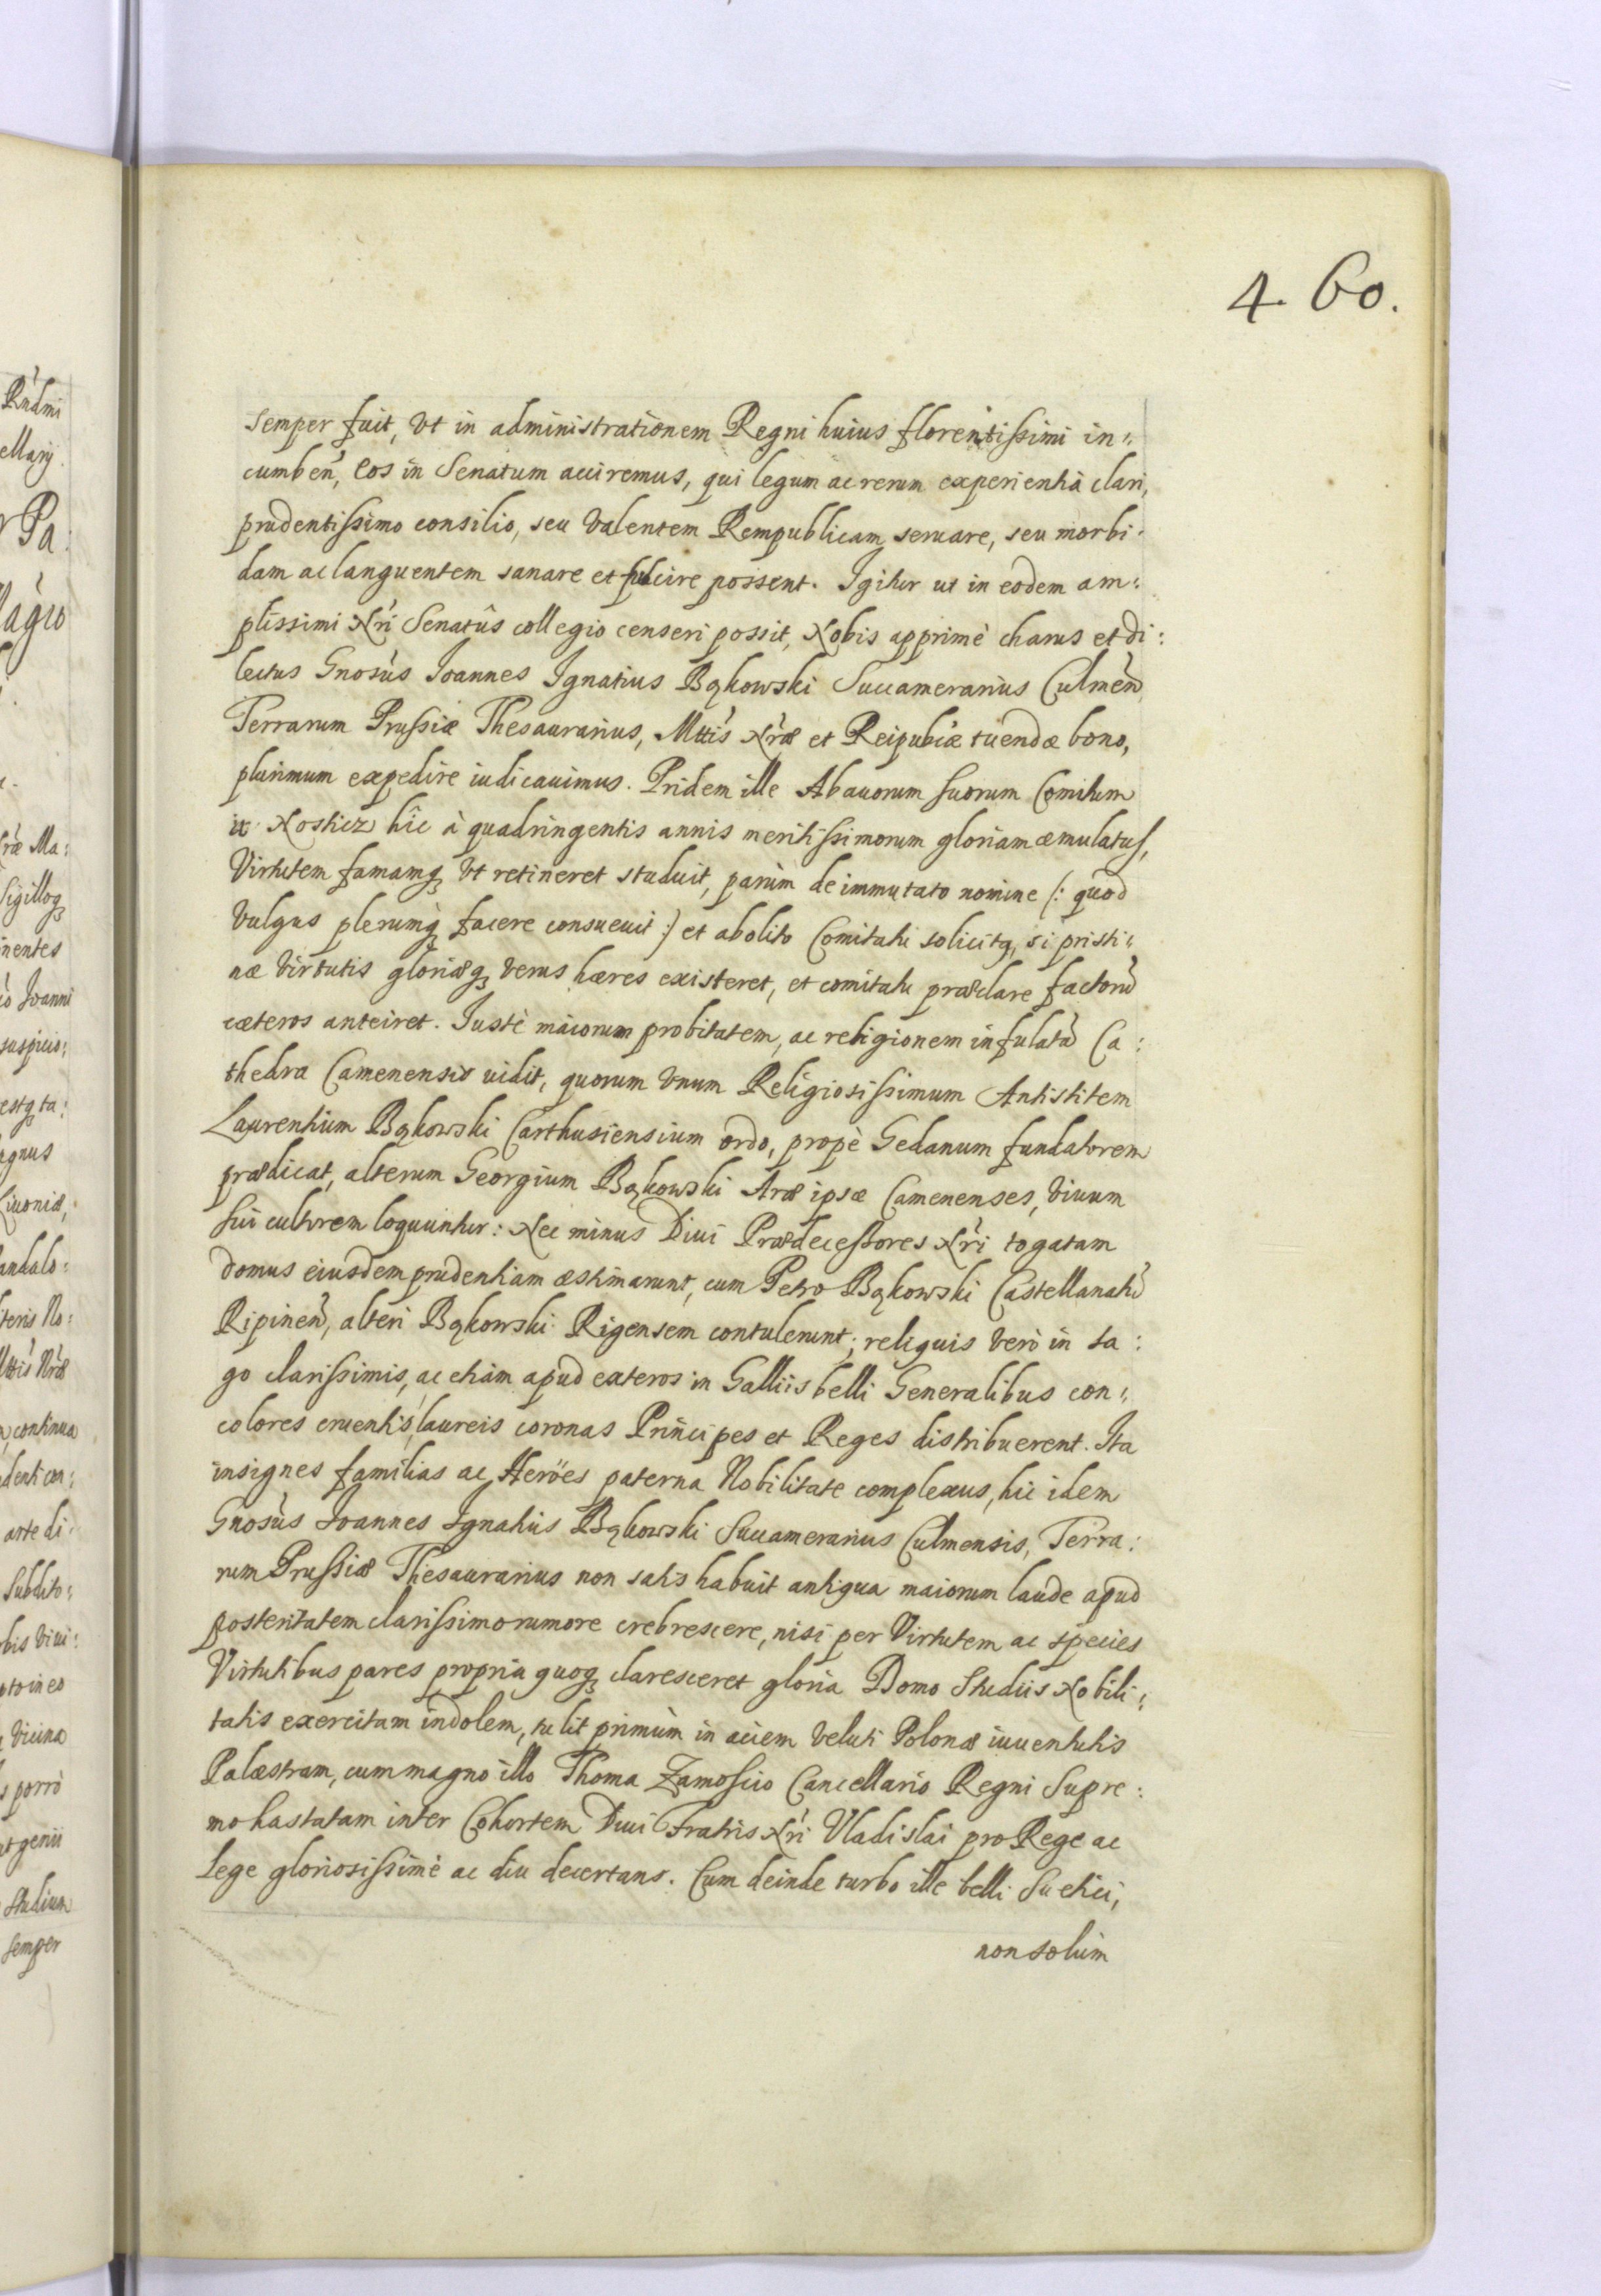 4. 60.
semper fuit, Vt in administrationem Regni huius florentissimi in:
cumben̄, Eos in Senatum acciremus, qui legum ac rerum experientiâ clari,
prudentissimo consilio, seu Valentem Rempublicam seruare, seu morbi:
dam ac languentem sanare et fulcire possent. Igitur ut in eodem am:
plissimi Nri Senatûs collegio censeri possit, Nobis apprimè charus et di:
lectus Gnosus Joannes Ignatius Bąkowski Succamerarius Culmen̄
Terrarum Prussiæ Thesaurarius, Mttis Nræ et Reipubæ tuendæ bono,
plurimum expedire iudicauimus. Pridem ille Abauorum suorum Comitum
ix Nosticz hîc à quadringentis annis meritissimorum gloriam æmulatus,
Virtutem famamq Vt retineret studuit, parùm de immutato nomine (: quod
Vulgus plerumq facere consueuit :) et abolito Comitatu solicitq, si pristi:
næ Virtutis gloriæq verus hæres existeret, et comitatu præclare factorū
cæteros anteiret. Justè maiorum probitatem, ac religionem infulatā Ca:
thedra Camenensis uidit, quorum Vnum Religiosissimum Antistitem
Laurentium Bąkowski Carthusiensium ordo, propè Gedanum fundatorem
prædicat, alterum Georgium Bąkowski Aræ ipsæ Camenenses, Viuum
sui cultorem loquuntur: Nec minus Diui Prædecessores Nri togatam
domus eiusdem prudentiam æstimarunt, cum Petro Bąkowski Castellanatū
Ripinen̄, alteri Bąkowski Rigensem contulerunt; reliquis verò in sa:
go clarissimis, ac etiam apud exteros in Galliis belli Generalibus con:
colores cruentis laureis coronas Principes et Reges distribuerent. Ita
insignes familias ac Heröes paterna Nobilitate complexus, hic idem
Gnosus Joannes Ignatius Bąkowski Succamerarius Culmensis, Terra:
rum Prussiæ Thesaurarius non satis habuit antiqua maiorum laude apud
posteritatem clarissimo rumore crebrescere, nisi per Virtutem ac species
Virtutibus pares propria quoq claresceret gloria Domo Studiis Nobili:
tatis exercitam indolem, tulit primùm in aciem veluti Polonæ iuuentutis
Palæstram, cum magno illo Thoma Zamoscio Cancellario Regni Supre:
mo hastatam inter Cohortem Diui Fratris Nri Vladislai pro Rege ac
Lege gloriosissimè ac diu decertans. Cum deinde turbo ille belli Suetici,
non solùm